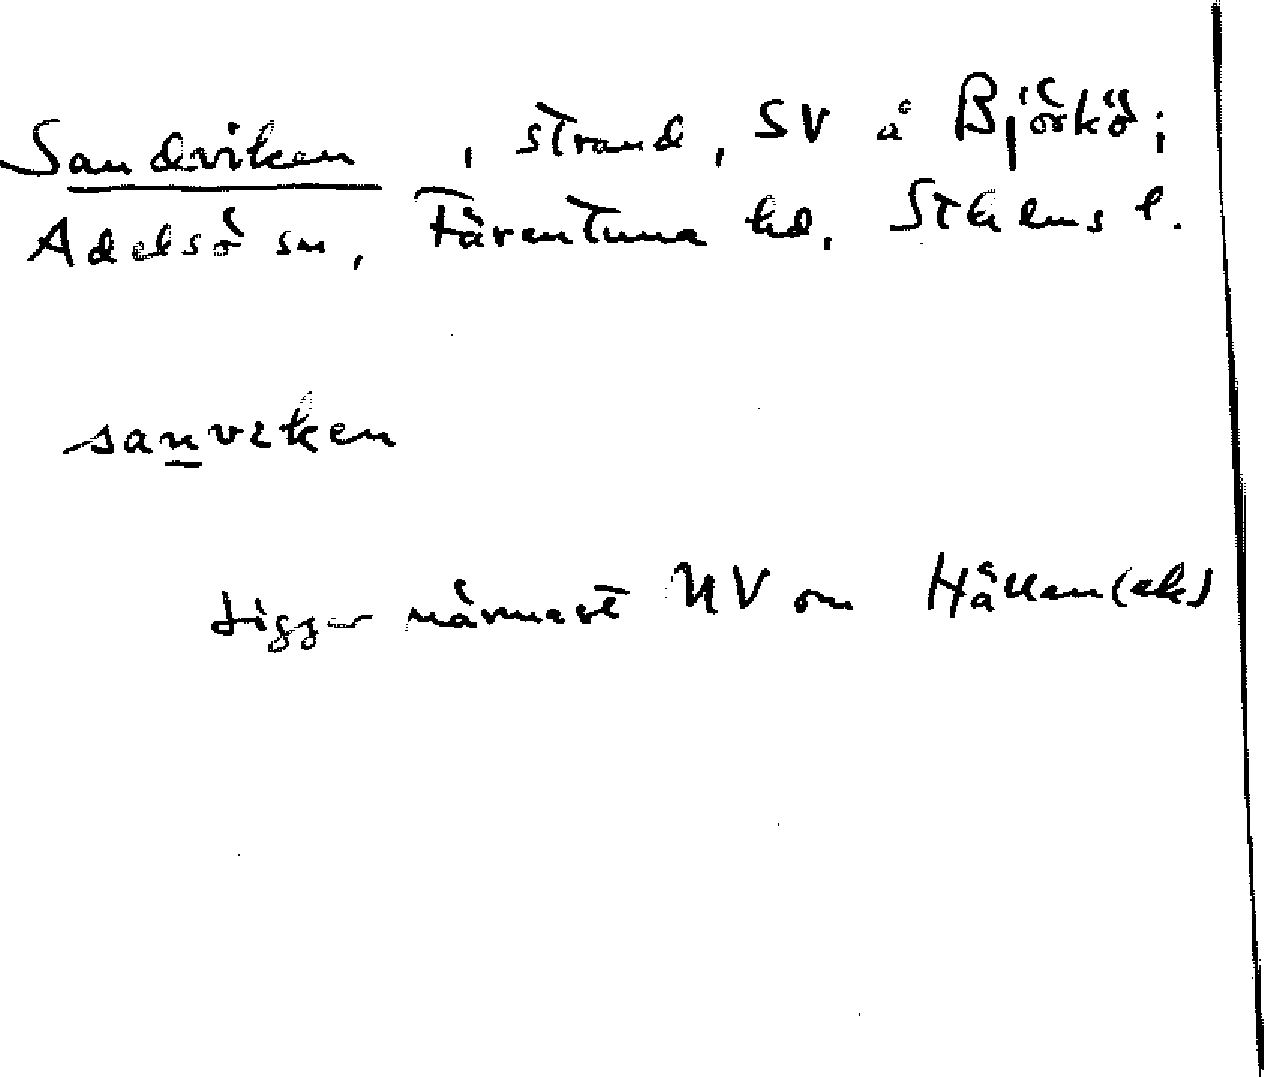 Sandviken, strand, SV å Björkö;
Adelsö sn, Färentuna hd, Sthlms l.
sanviken
Ligger närmast NV om Hällen (ek)